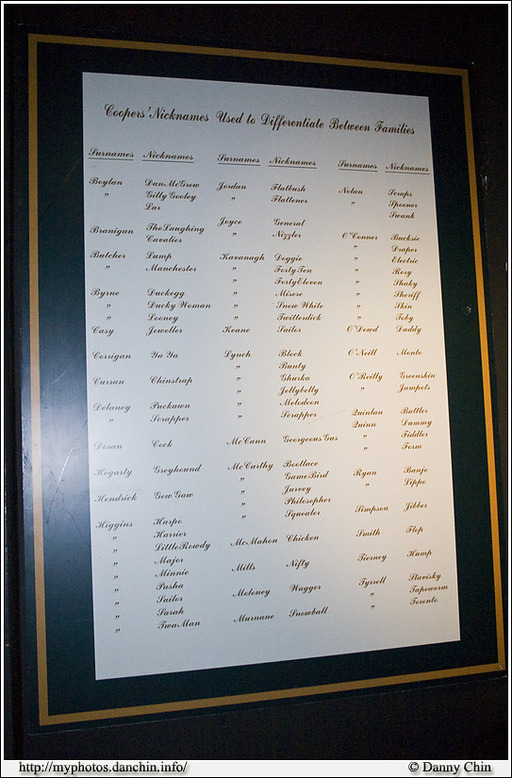 Coopers' Nicknames Used to Differentiate Between Families
Surnames Nicknames Surnames Nicknames Surnames Nicknames
Boylan Dan McGrew
" Gilly Gooley
Lar
Branigan The Laughing
Cavalier
Butcher Lump
" Manchester
Byrne Duckegg
" Ducky Woman
" Looney
Casy Jeweller
Corrigan Ya Ya
Curran Chinstrap
Delaney Puckawn
" Scrapper
Doran Cock
Hegarty Greyhound
Hendrick Gew Gaw
Higgins Harpo
" Harrier
" Little Rowdy
" Major
" Minnie
" Pasha
" Sailor
" Sarah
" Twa Man
Jordan Flatbush
" Flattener
Joyce General
" Nizzler
Kavanagh Doggie
" Forty Ten
" Forty Eleven
" Misery
" Snow White
" Twitterdick
Keane Sailor
Lynch Block
" Bunty
" Ghurka
" Jellybelly
" Melodeon
" Scrapper
McCann Georgeous Gus
McCarthy Bootlace
" Game Bird
" Jarvey
" Philosopher
" Squealer
McMahon Chicken
Mills Nifty
Moloney Wagger
Murnane Snowball
Nolan Scraps
" Spooner
Swank
O'Conner Bucksie
" Draper
" Electric
" Rory
" Shaky
" Sheriff
" Skin
" Toby
O'Dowd Daddy
O'Neill Monto
O'Reilly Greenskin
" Jampots
Quinlan Battler
Quinn Dummy
" Tiddler
" Form
Ryan Banjo
" Lippo
Simpson Jibber
Smith Flop
Tierney Hamp
Tyrell Stavisky
" Tapeworm
" Toronto
http://myphotos.danchin.info/
© Danny Chin